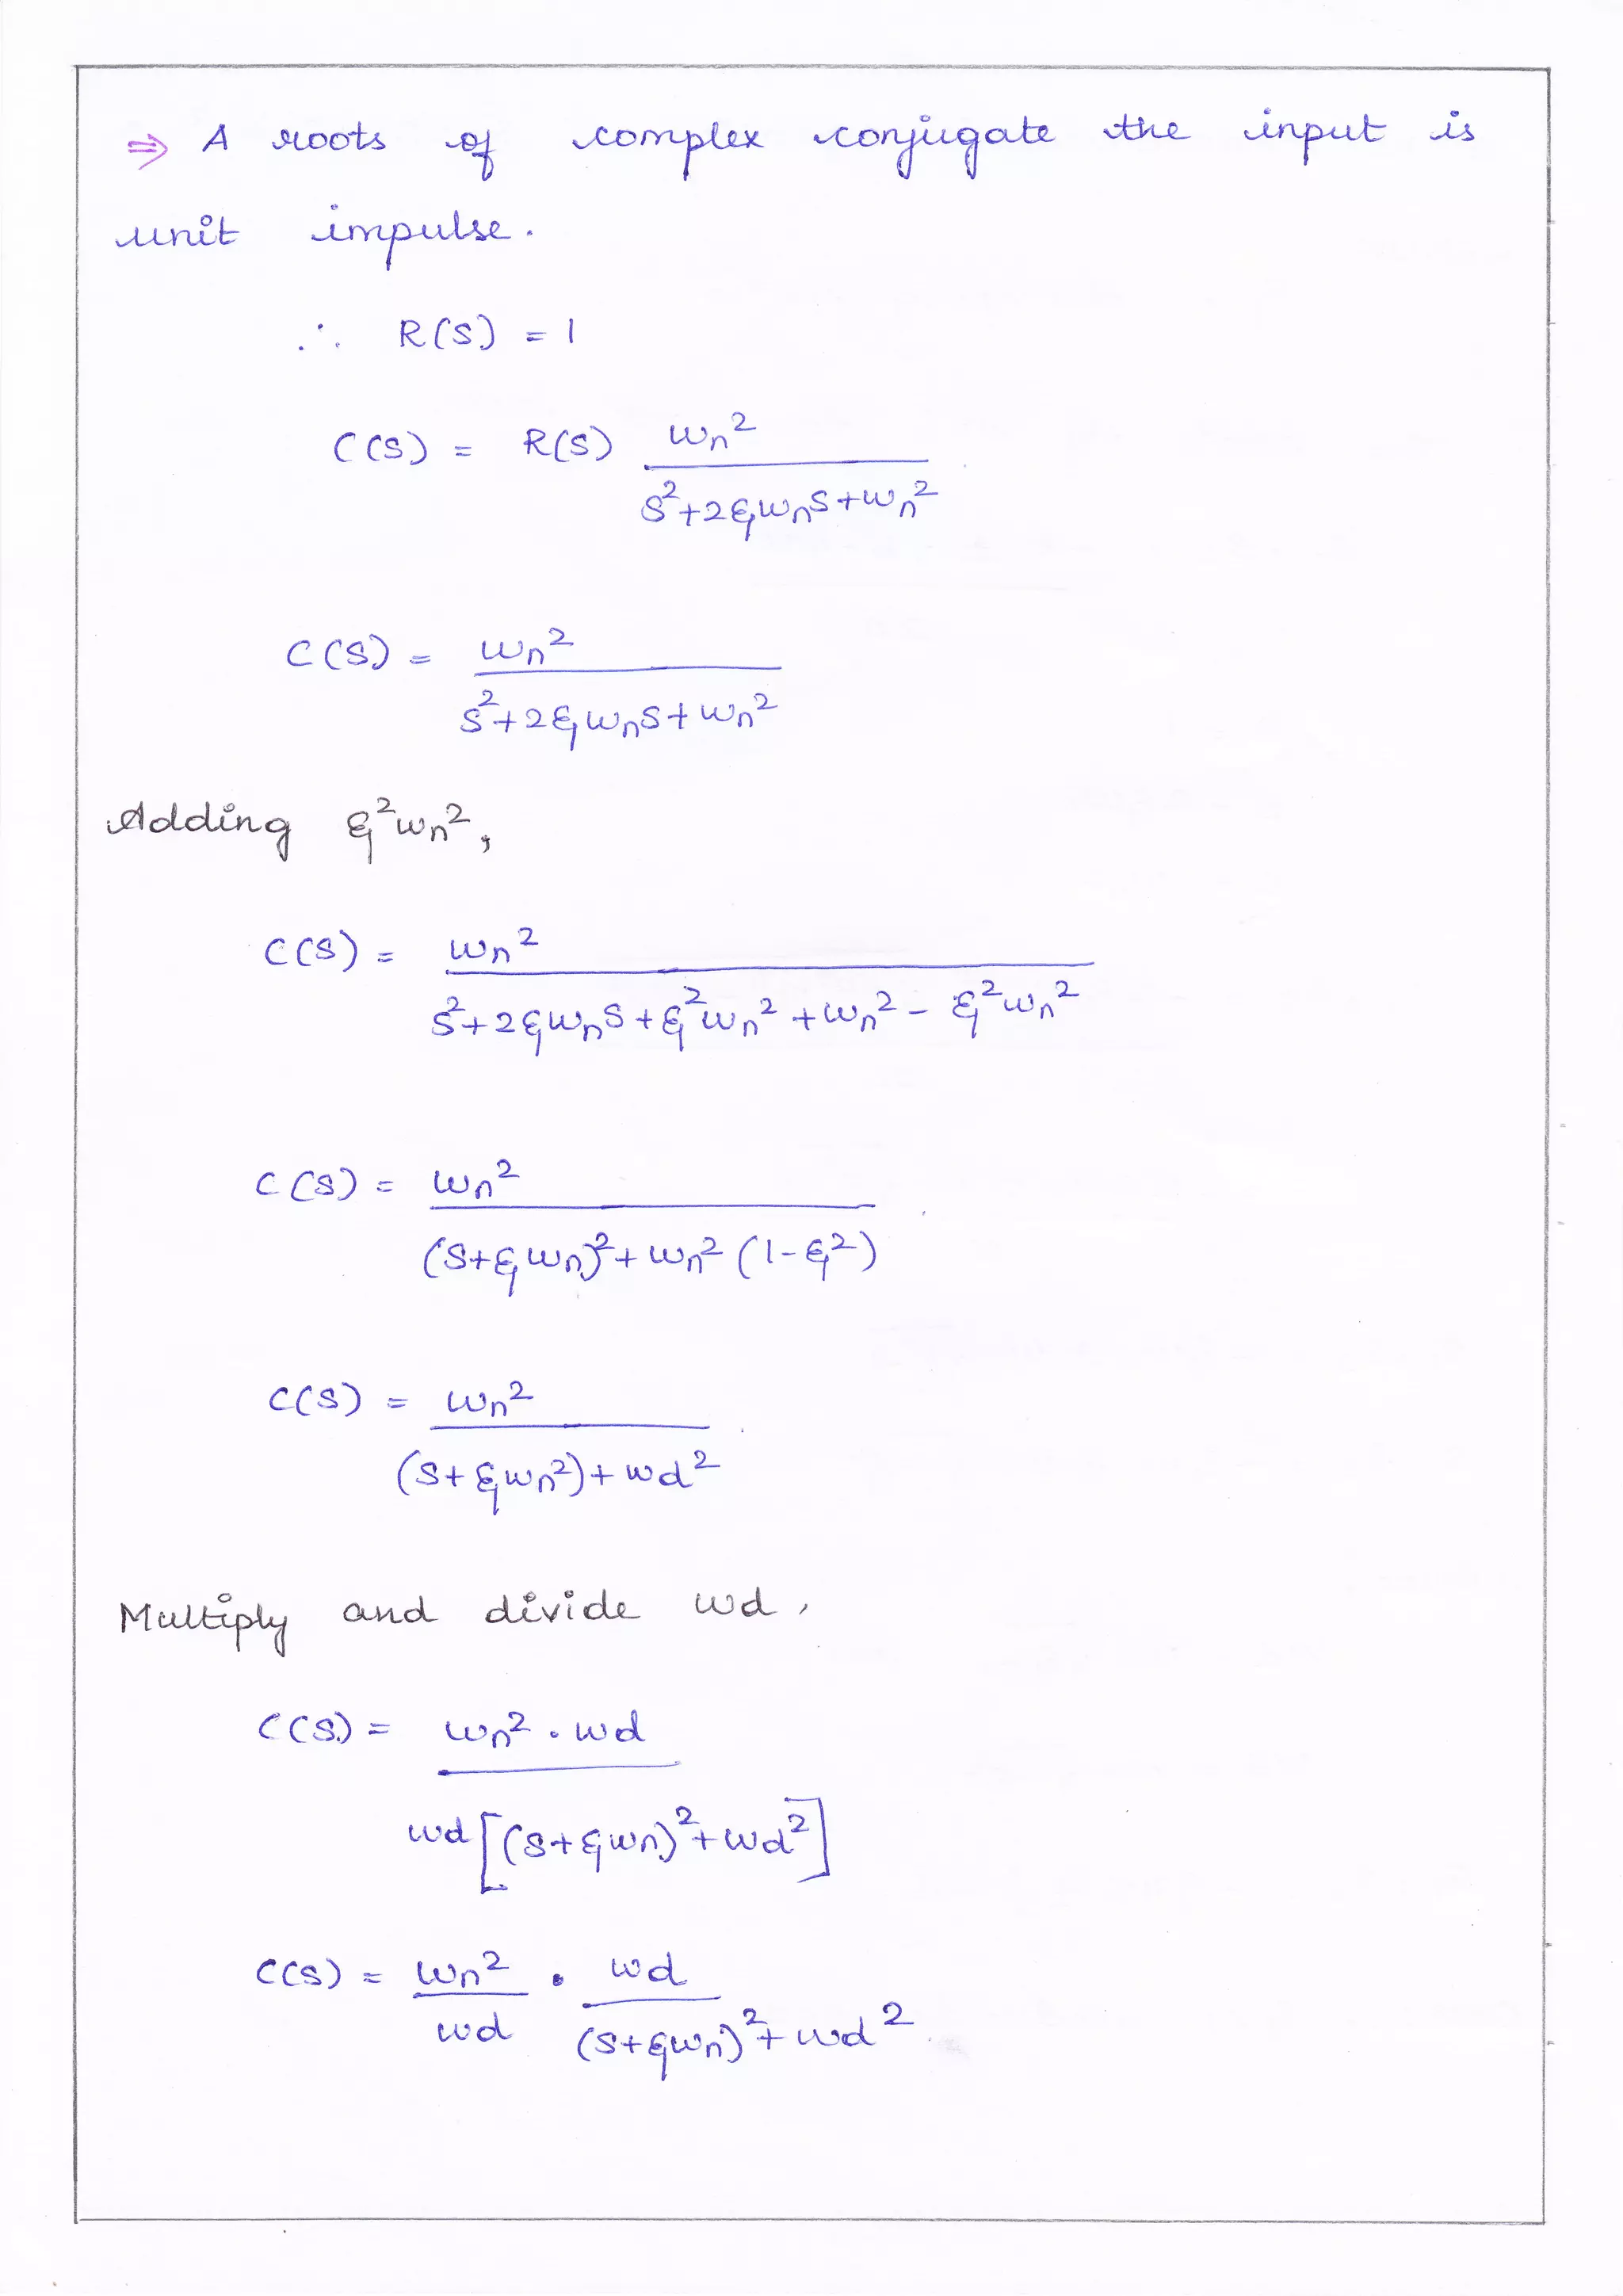 ⇒ A roots of complex conjugate the input is
unit impulse.
∴ R(S) = 1
C(S) = R(S) ωn² / S²+2ξωnS+ωn²
C(S) = ωn² / S²+2ξωnS+ωn²
Adding ξ²ωn²,
C(S) = ωn² / S²+2ξωnS+ξ²ωn²+ωn²-ξ²ωn²
C(S) = ωn² / (S+ξωn)²+ωn²(1-ξ²)
C(S) = ωn² / (S+ξωn²)+ωd²
Multiply and divide ωd,
C(S) = ωn².ωd / ωd[(S+ξωn)²+ωd²]
C(S) = ωn²/ωd . ωd / (S+ξωn)²+ωd²